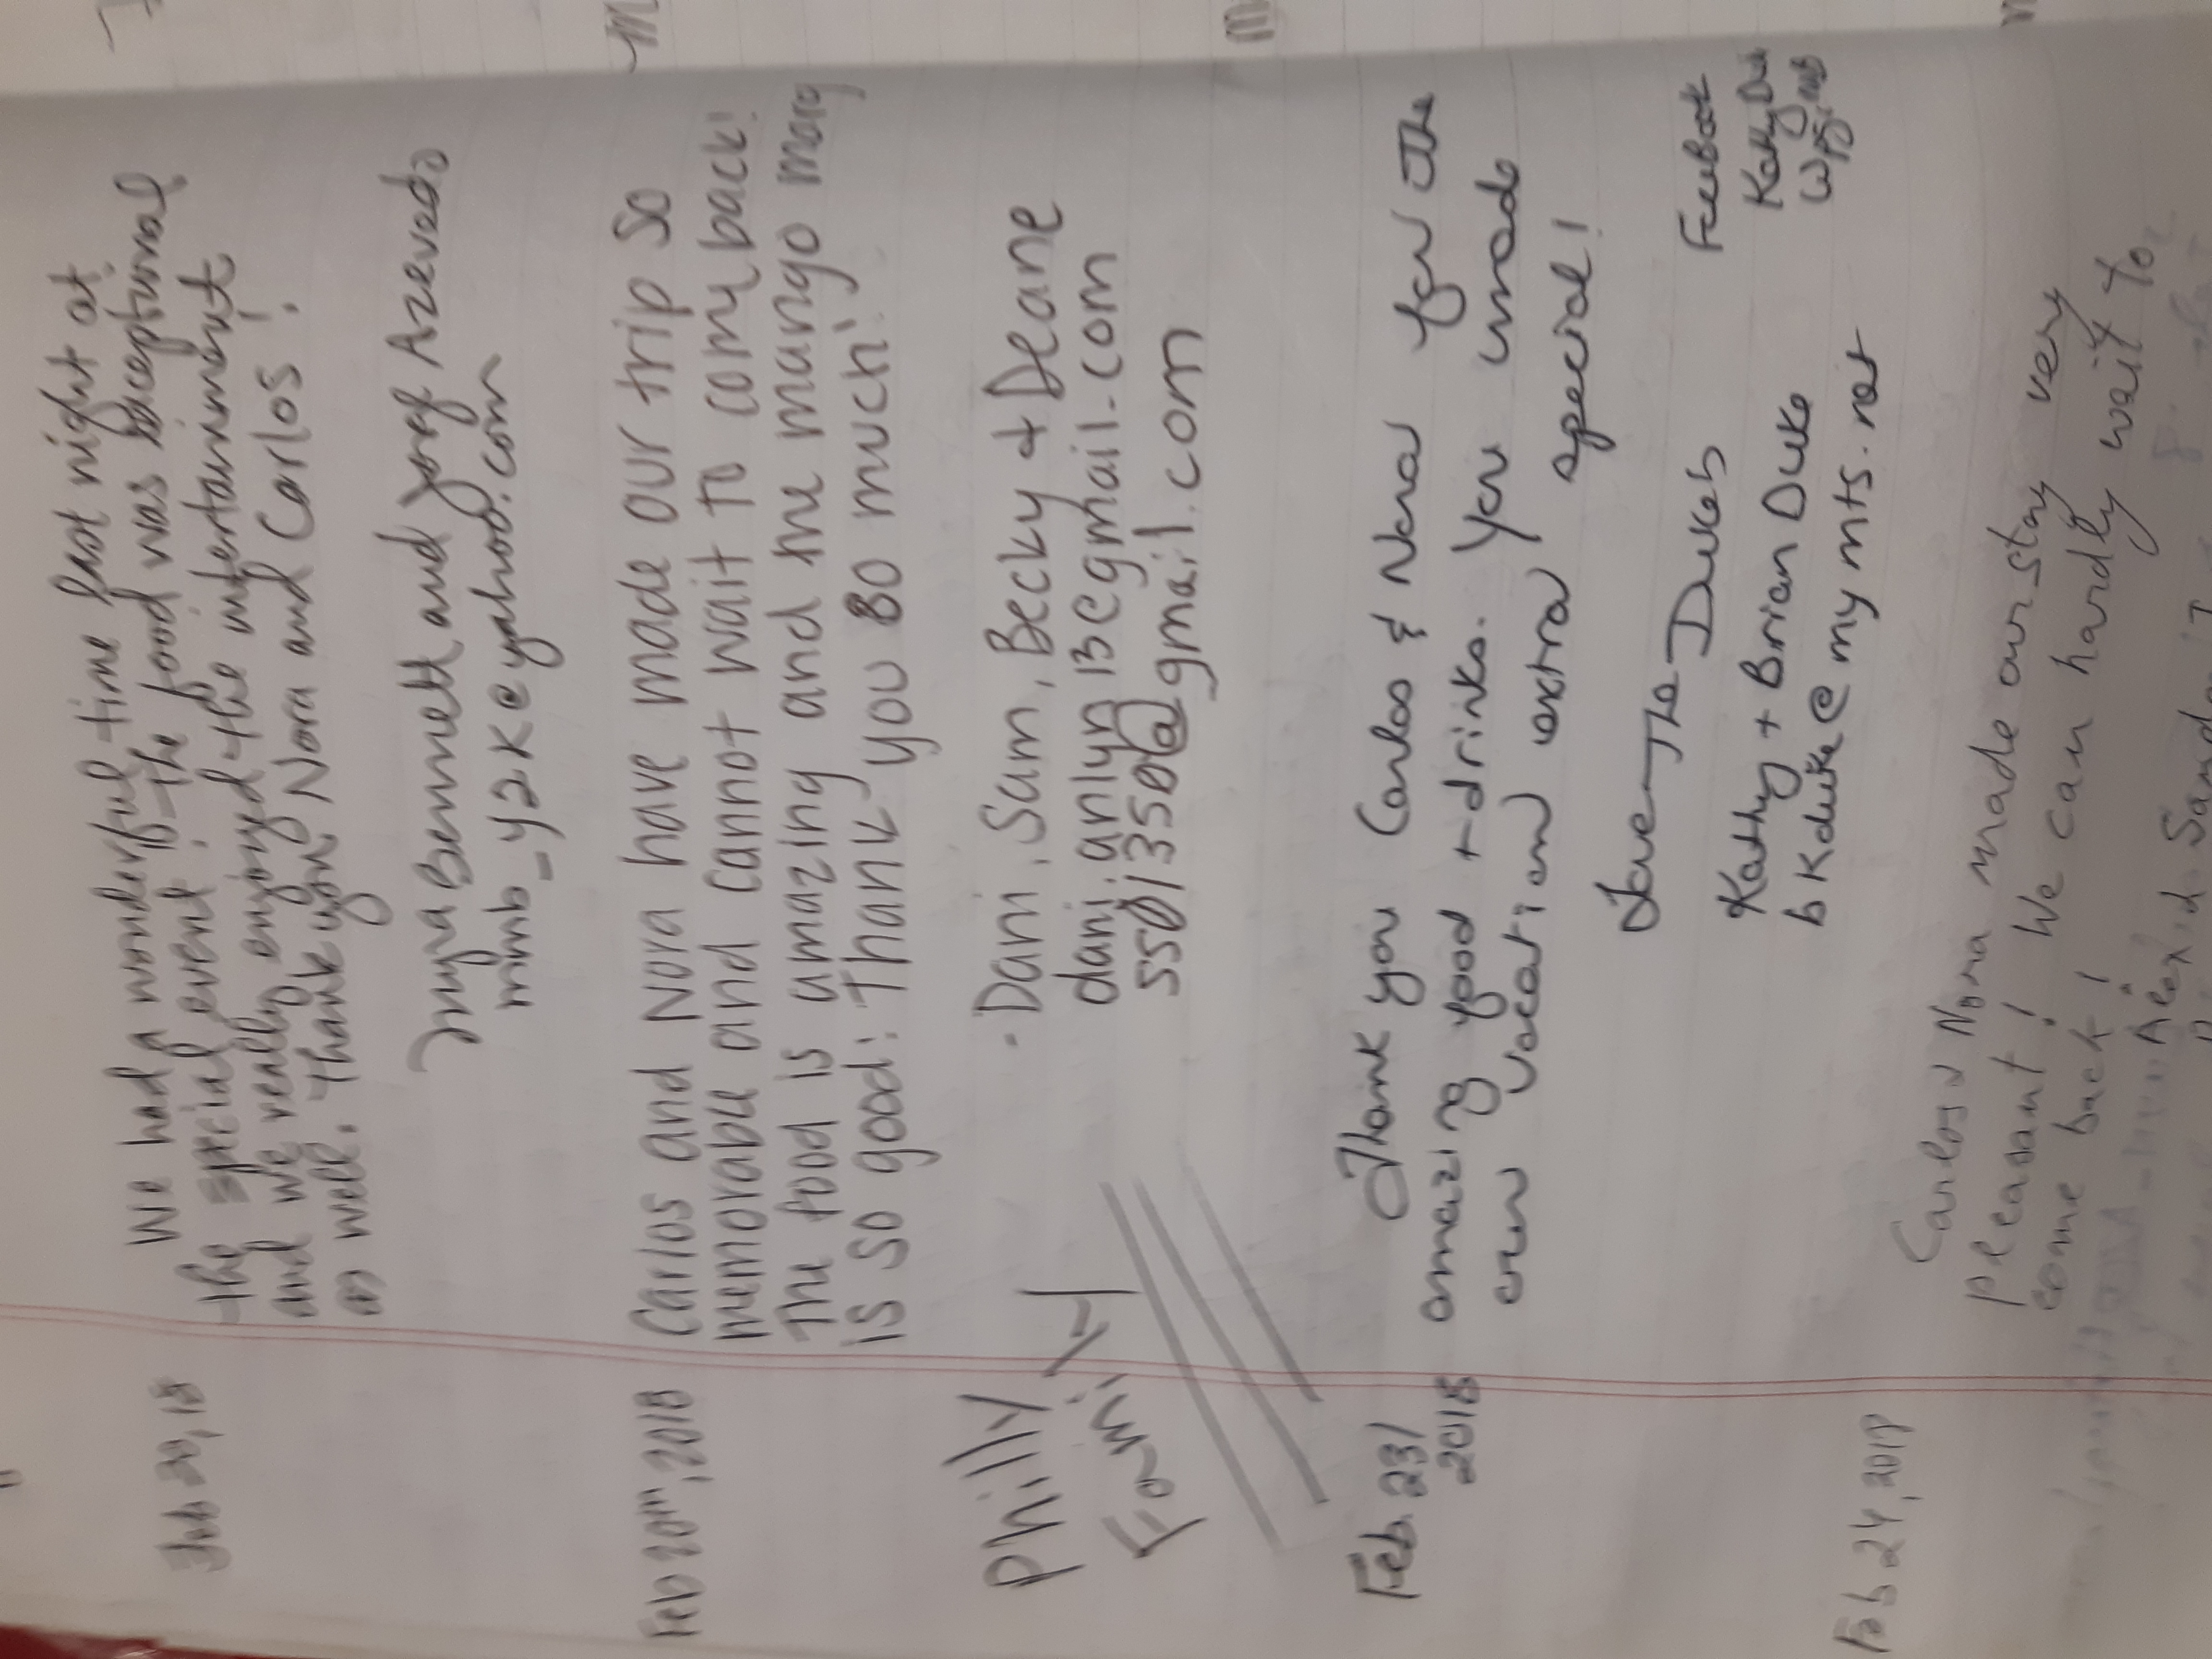 Feb 20, 18
We had a wonderful time last night at
the special event. the food was exceptional
and we really enjoyed the intertainment
as well. Thank you Nora and Carlos!
Myra Bennett and Jorge Azevedo
mmb_y2k@yahoo.com
Feb 20th, 2018
Carlos and Nora have made our trip so
memorable and cannot wait to come back!
The food is amazing and the mango marg
is so good! Thank you so much!
Philly
Fam
- Dani, Sam, Becky & Deane
dani.anlyn13@gmail.com
5501350@gmail.com
Feb. 23/
2018
Thank you Carlos & Nora for the
amazing food + drinks. You made
our vacation extra special!
Love The Dukes
Kathy + Brian Duke
bkduke@mymts.net
Facebook
Kathy Du
Wpg, mb
Feb 24, 2018
Carlos & Nora made our stay very
pleasant! We can hardly wait to
come back!